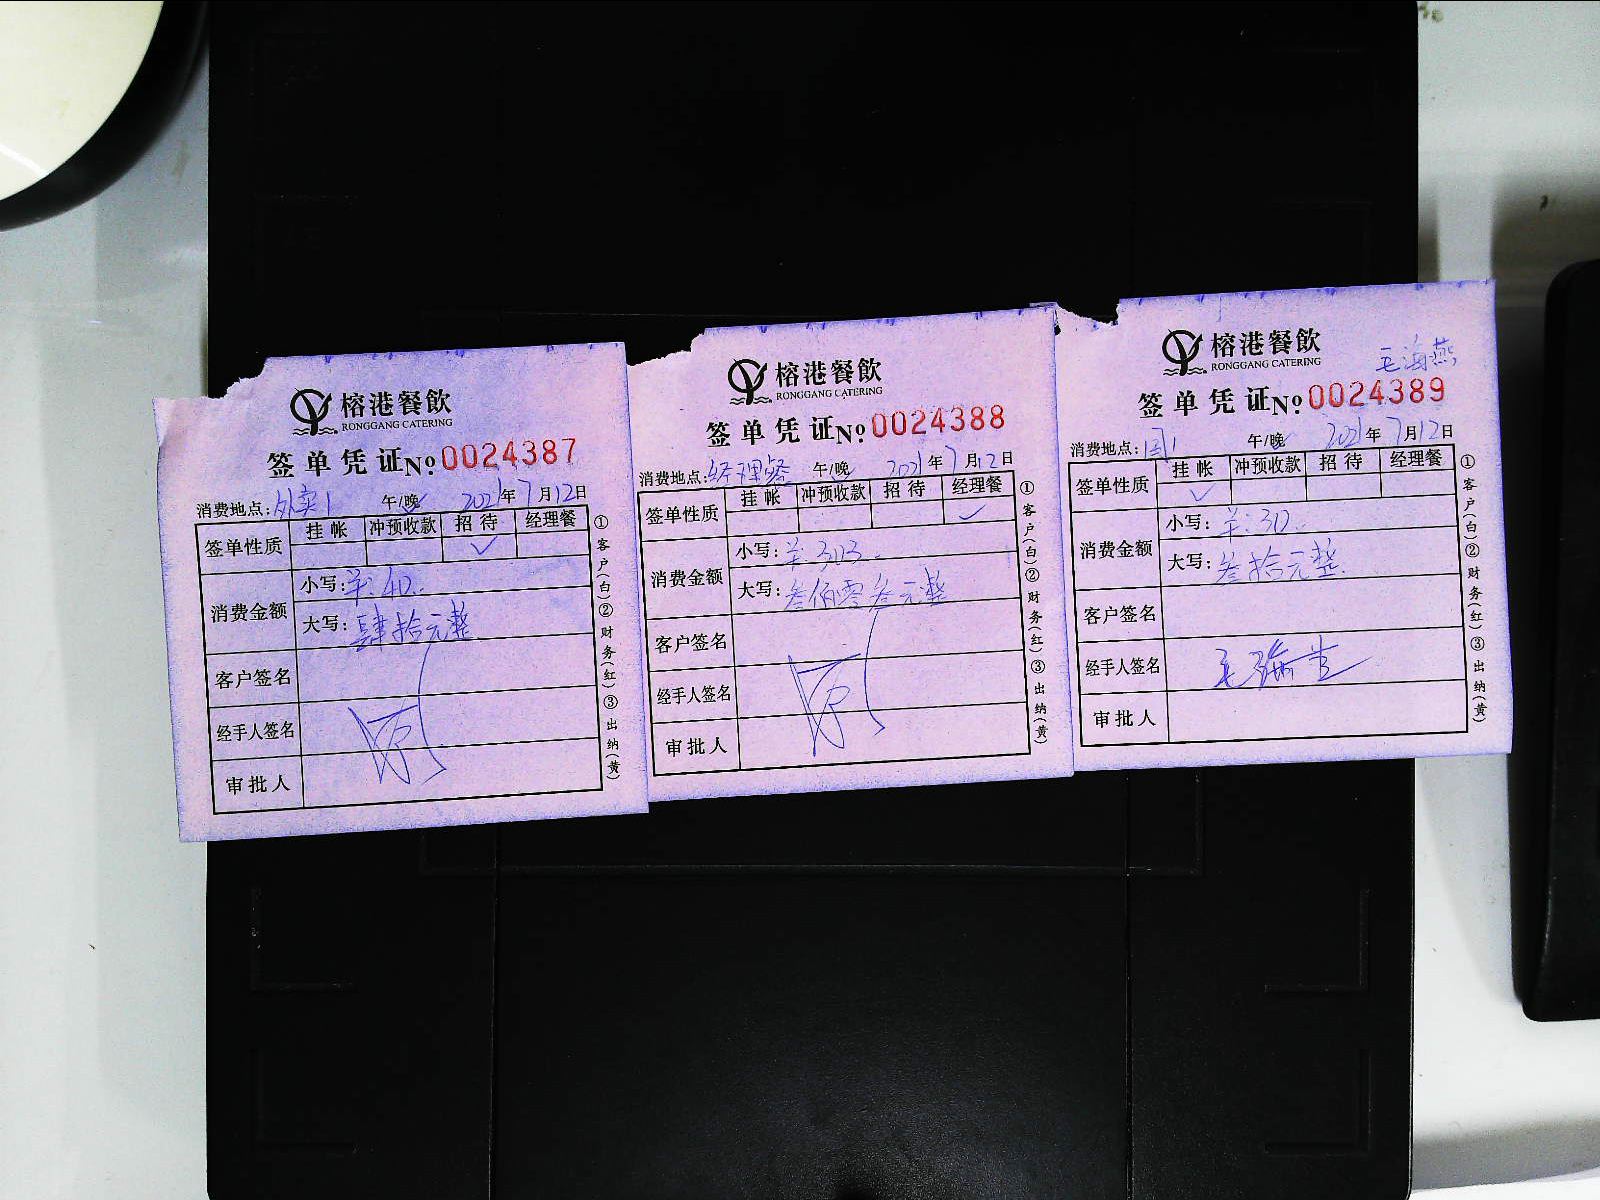 榕港餐飲
RONGGANG CATERING
签单凭证No.0024387
消费地点:外卖1 午/晚 2021年7月12日
签单性质 挂帐 冲预收款 招待 经理餐
✓
消费金额
小写:羊:40..
大写:肆拾元整
客户签名
经手人签名
审批人
①客户(白)②财务(红)③出纳(黄)
榕港餐飲
RONGGANG CATERING
签单凭证No.0024388
消费地点:经理餐 午/晚 2021年7月12日
签单性质 挂帐 冲预收款 招待 经理餐
✓
消费金额
小写:羊:303..
大写:叁佰零叁元整
客户签名
经手人签名
审批人
①客户(白)②财务(红)③出纳(黄)
榕港餐飲
RONGGANG CATERING
毛海燕
签单凭证No.0024389
消费地点: 午/晚 2021年7月12日
签单性质 挂帐 冲预收款 招待 经理餐
✓
消费金额
小写:羊:30..
大写:叁拾元整
客户签名
经手人签名
审批人
①客户(白)②财务(红)③出纳(黄)